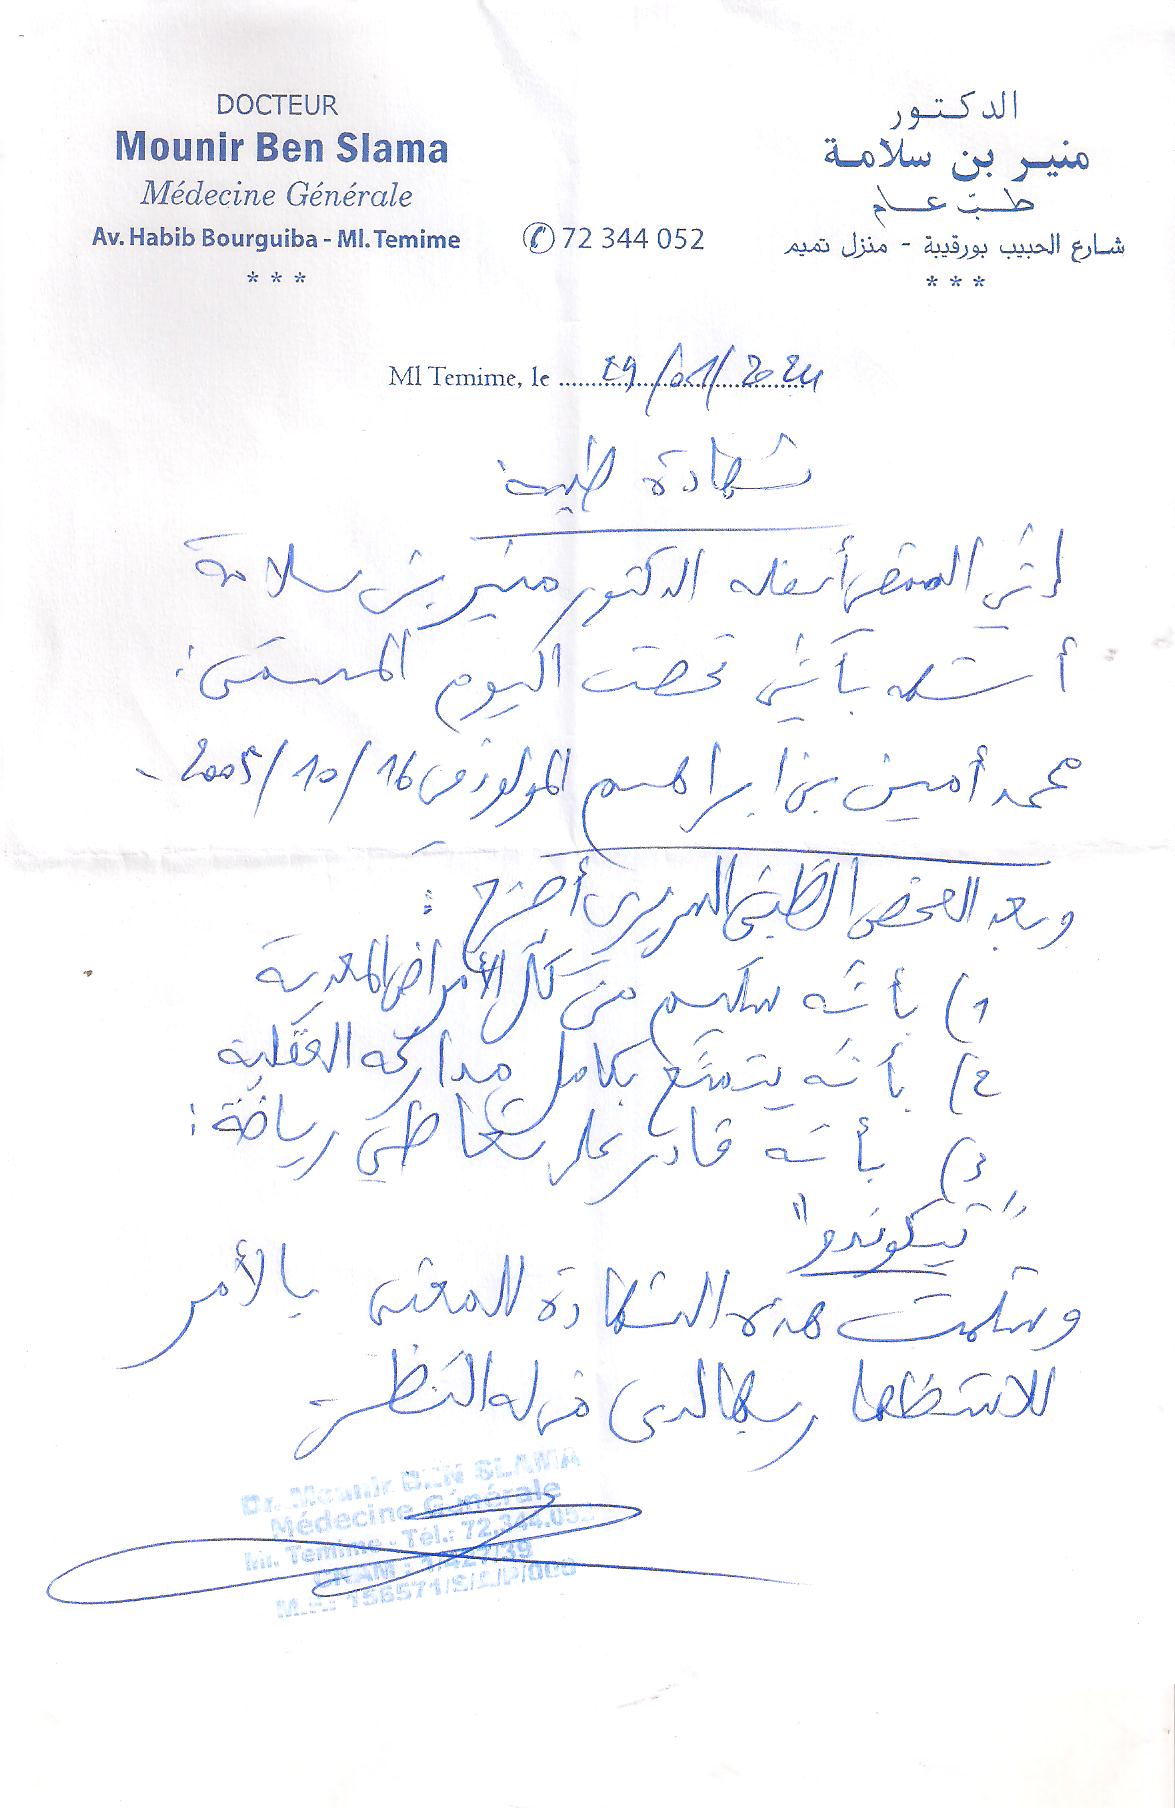 DOCTEUR
Mounir Ben Slama
Médecine Générale
Av. Habib Bourguiba - Ml. Temime
* * *
72 344 052
الدكتور
منير بن سلامة
طبّ عام
شارع الحبيب بورقيبة - منزل تميم
* * *
Ml Temime, le 29/01/2024
شهادة طبية
إنّي الممضي أسفله الدكتور منير بن سلامة
أشهد بأنّي فحصت اليوم المسمّى:
محمد أمين بن ابراهيم المولود في 16/10/2005
وبعد الفحص الطّبّي السريري أصرّح :
1) بأنّه سليم من كلّ الأمراض المعدية
2) بأنّه يتمتّع بكامل مداركه العقلية
3) بأنّه قادر على تعاطي رياضة:
"تيكوندو"
وسلّمت هذه الشهادة للمعني بالأمر
للاستظهار بها لدى من له النظر
Dr. Mounir BEN SLAMA
Médecine Générale
Ml. Temime - Tél.: 72.344.05
CNAM :